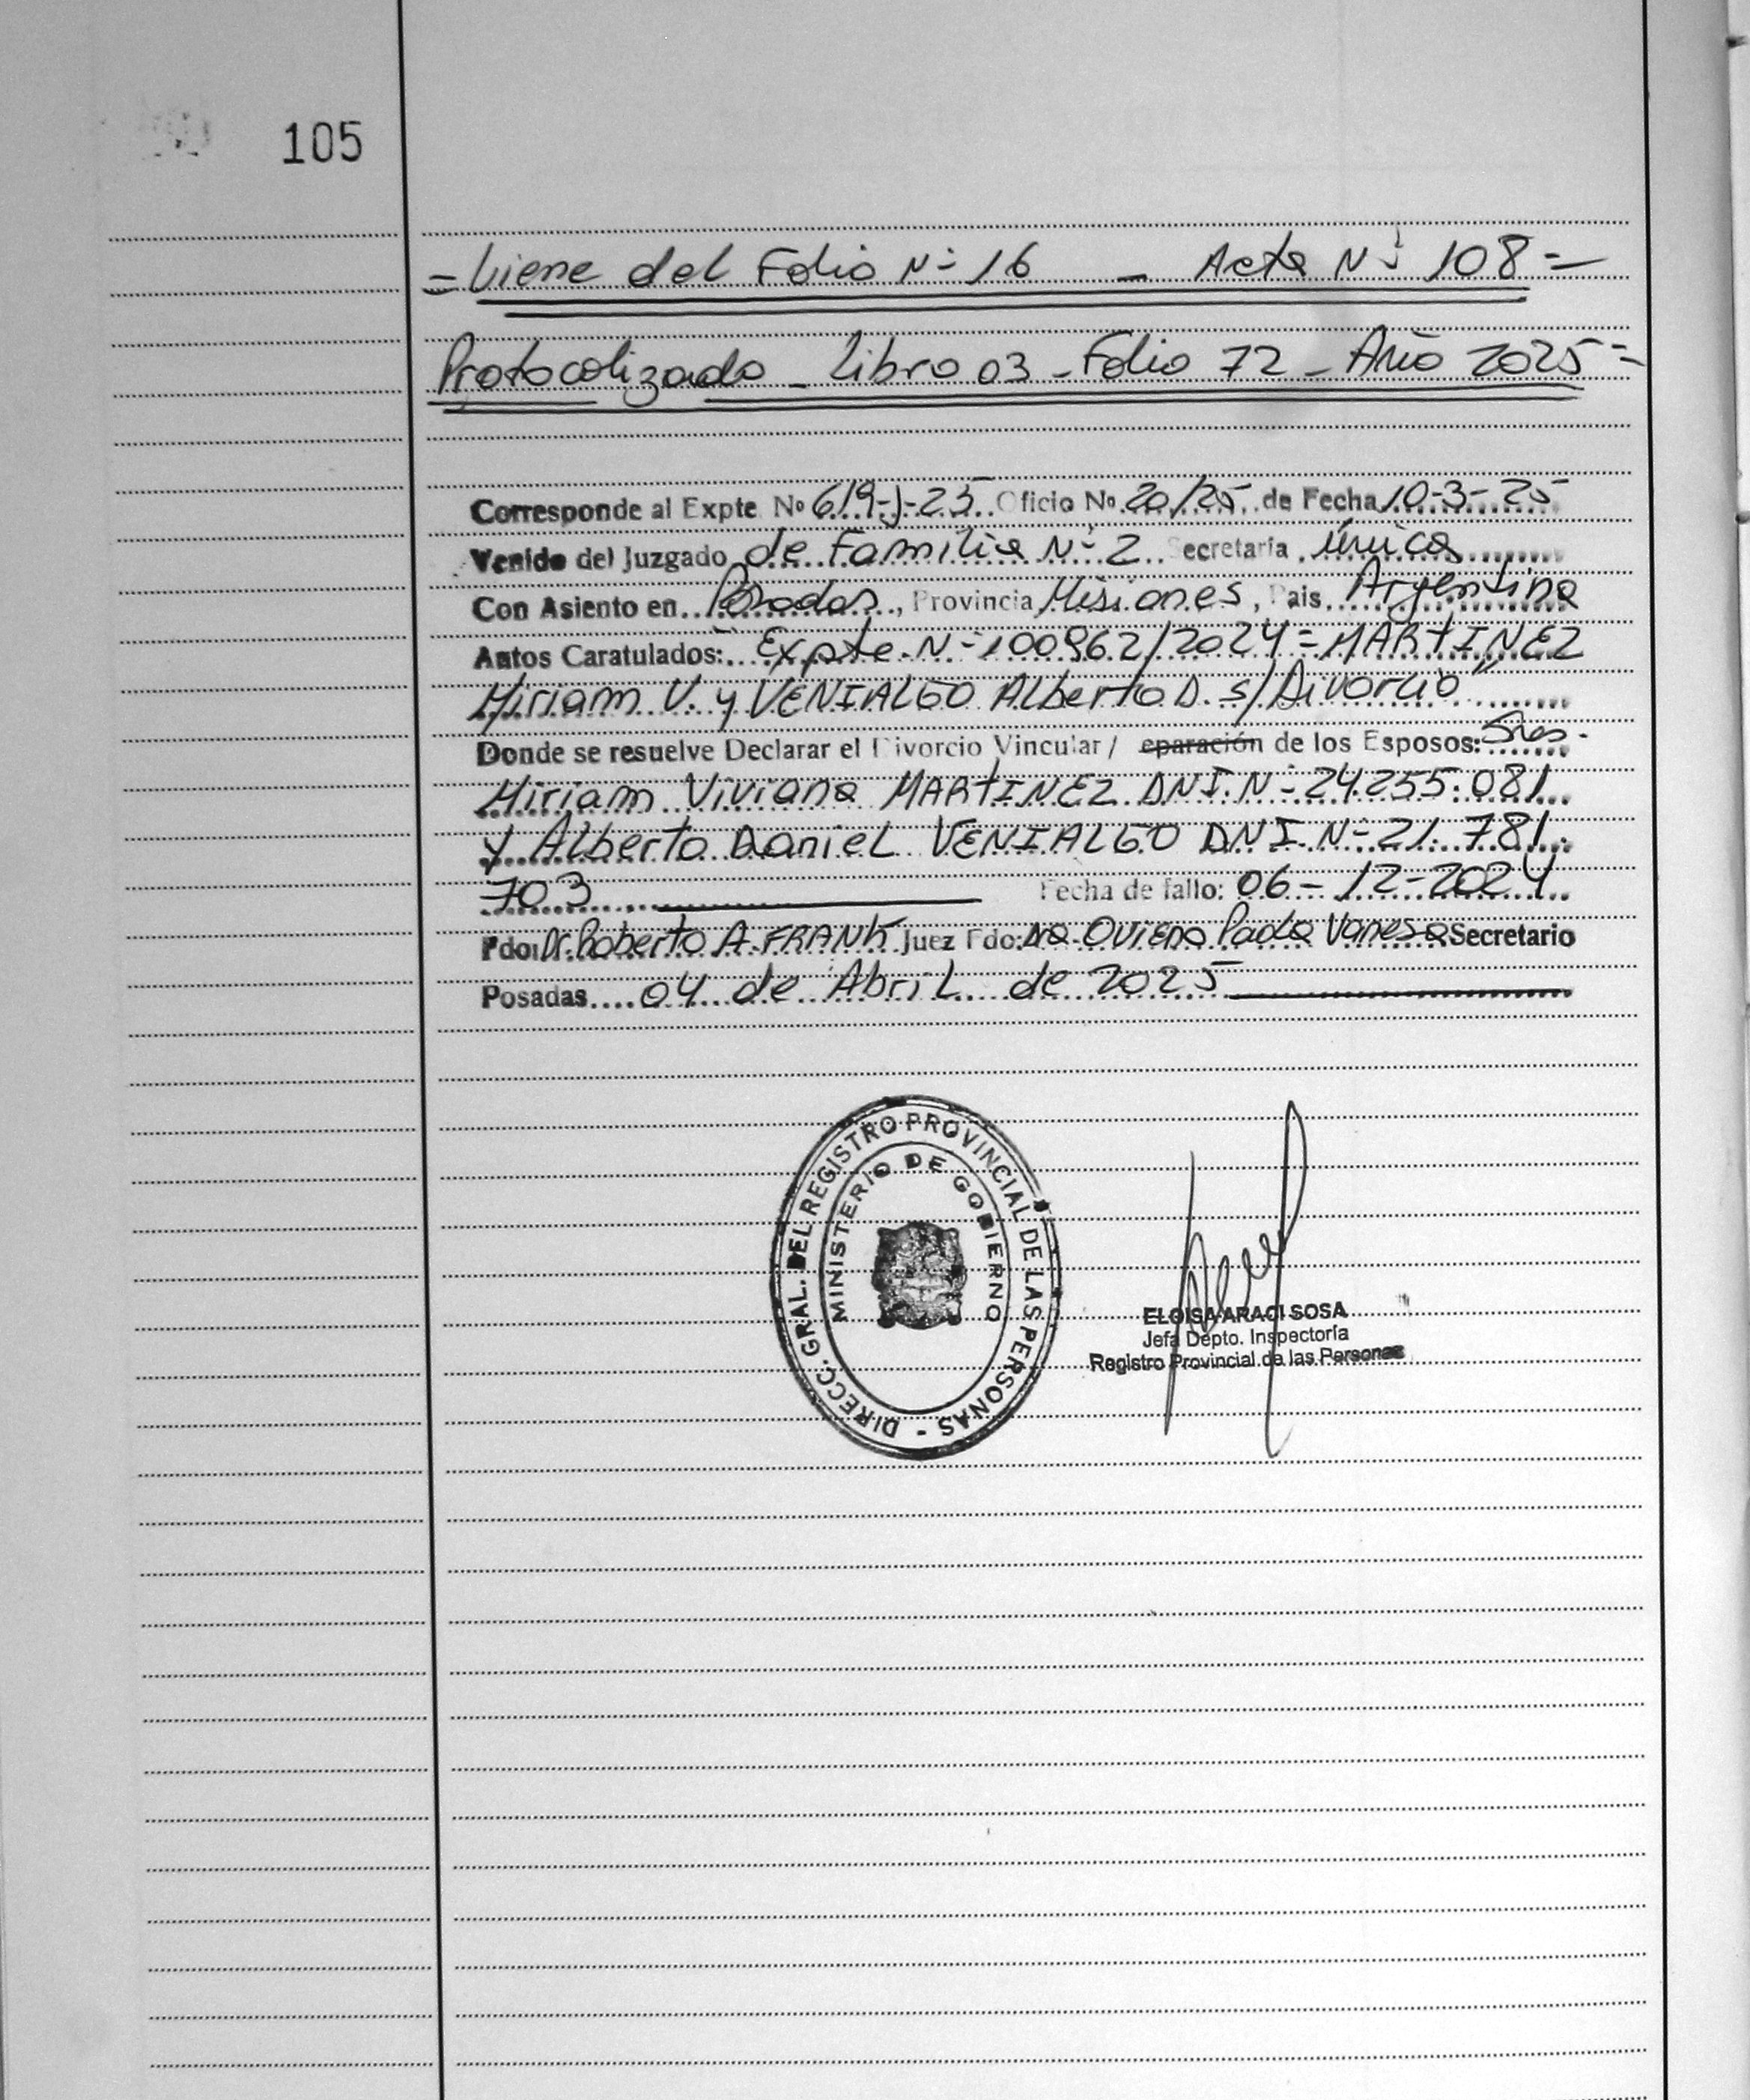 105
= Viene del Folio Nº 16 - Acta Nº 108 =
Protocolizado - Libro 03 - Folio 72 - Año 2025 =
Corresponde al Expte Nº 619-J-25 Oficio Nº 20/25 de Fecha 10-3-25
Venido del Juzgado de Familia Nº 2 Secretaría única
Con Asiento en Posadas, Provincia Misiones, Pais Argentina
Autos Caratulados: "Expte Nº 100962/2024 = MARTINEZ
Miriam V. y VENIALGO Alberto D. s/Divorcio"
Donde se resuelve Declarar el Divorcio Vincular / eparación de los Esposos: Sres.
Miriam Viviana MARTINEZ DNI Nº 24.255.081
y Alberto Daniel VENIALGO DNI Nº 21.781.
703 Fecha de fallo: 06-12-2024
Fdo: Dr. Roberto A. FRANK Juez Fdo: Dra Paola Vanesa Secretario
Posadas 04 de Abril de 2025
DIRECC. GRAL. DEL REGISTRO PROVINCIAL DE LAS PERSONAS -
MINISTERIO DE GOBIERNO
ELOISA ARACI SOSA
Jefa Depto. Inspectoría
Registro Provincial de las Personas